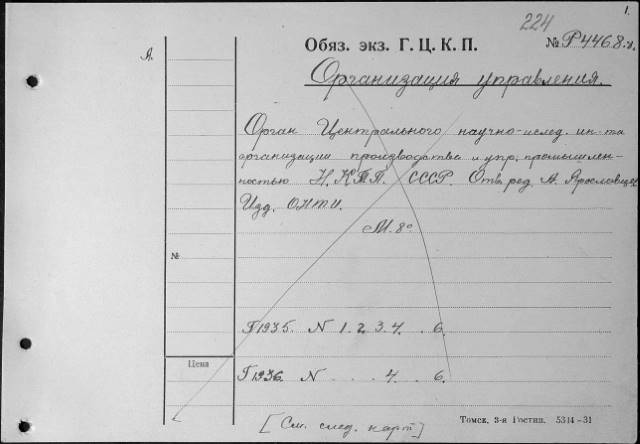 1.
224
Обяз. экз. Г. Ц. К. П. № Р446.8.
А.
Организация управления.
Орган Центрального научно-исслед. ин-та
организации производства и упр. промышлен-
ностью Н.К.Т.П. СССР. Отв. ред. А. Ярославцев
Изд. ОНТИ.
М. 8°
№
Г 1935. N 1. 2. 3. 4. . 6.
Цена
Г 1936. N . . . 4 . 6.
[См. след. карт]
Томск, 3-я Гостип. 5314-31